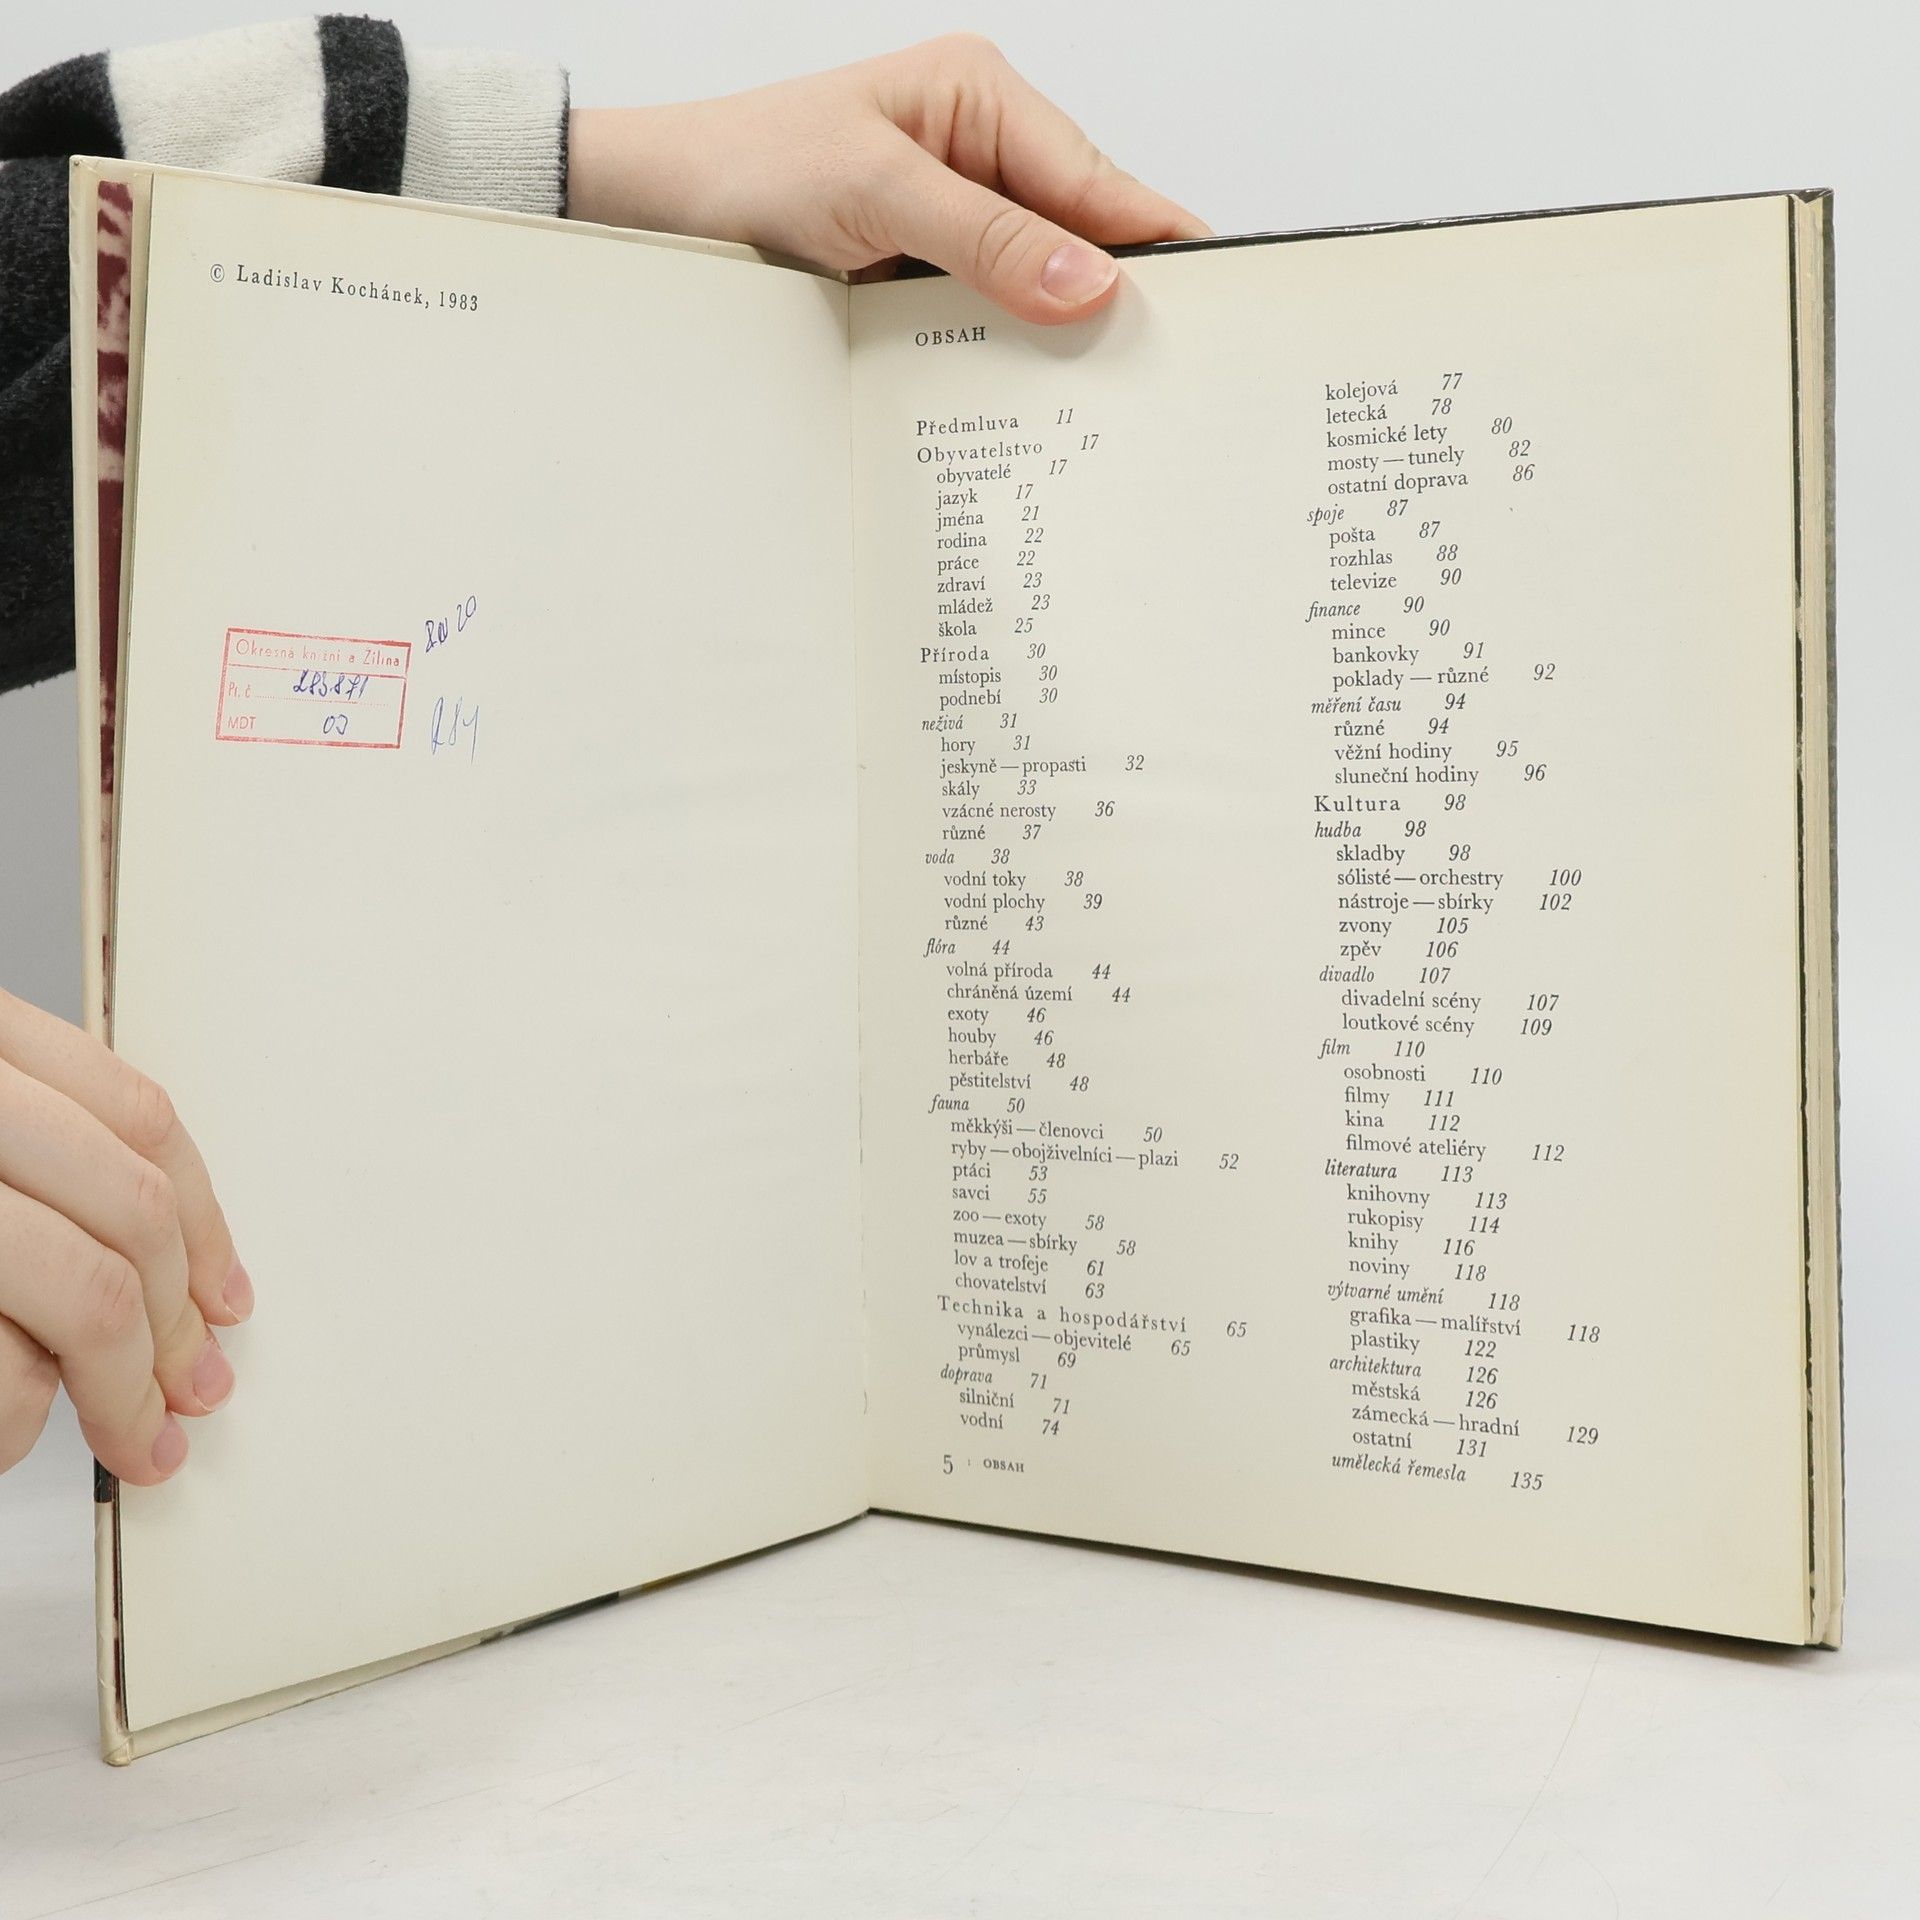 © Ladislav Kochánek, 1983
Okresná knižni a Žilina
Pr. č.
MDT
OBSAH
Předmluva 11
Obyvatelstvo 17
obyvatelé 17
jazyk 17
jména 21
rodina 22
práce 22
zdraví 23
mládež 23
škola 25
Příroda 30
místopis 30
podnebí 30
neživá 31
hory 31
jeskyně — propasti 32
skály 33
vzácné nerosty 36
různé 37
voda 38
vodní toky 38
vodní plochy 39
různé 43
flóra 44
volná příroda 44
chráněná území 44
exoty 46
houby 46
herbáře 48
pěstitelství 48
fauna 50
měkkýši — členovci 50
ryby — obojživelníci — plazi 52
ptáci 53
savci 55
zoo — exoty 58
muzea — sbírky 58
lov a trofeje 61
chovatelství 63
Technika a hospodářství 65
vynálezci — objevitelé 65
průmysl 69
doprava 71
silniční 71
vodní 74
kolejová 77
letecká 78
kosmické lety 80
mosty — tunely 82
ostatní doprava 86
spoje 87
pošta 87
rozhlas 88
televize 90
finance 90
mince 90
bankovky 91
poklady — různé 92
měření času 94
různé 94
věžní hodiny 95
sluneční hodiny 96
Kultura 98
hudba 98
skladby 98
sólisté — orchestry 100
nástroje — sbírky 102
zvony 105
zpěv 106
divadlo 107
divadelní scény 107
loutkové scény 109
film 110
osobnosti 110
filmy 111
kina 112
filmové ateliéry 112
literatura 113
knihovny 113
rukopisy 114
knihy 116
noviny 118
výtvarné umění 118
grafika — malířství 118
plastiky 122
architektura 126
městská 126
zámecká — hradní 129
ostatní 131
umělecká řemesla 135
5 : OBSAH